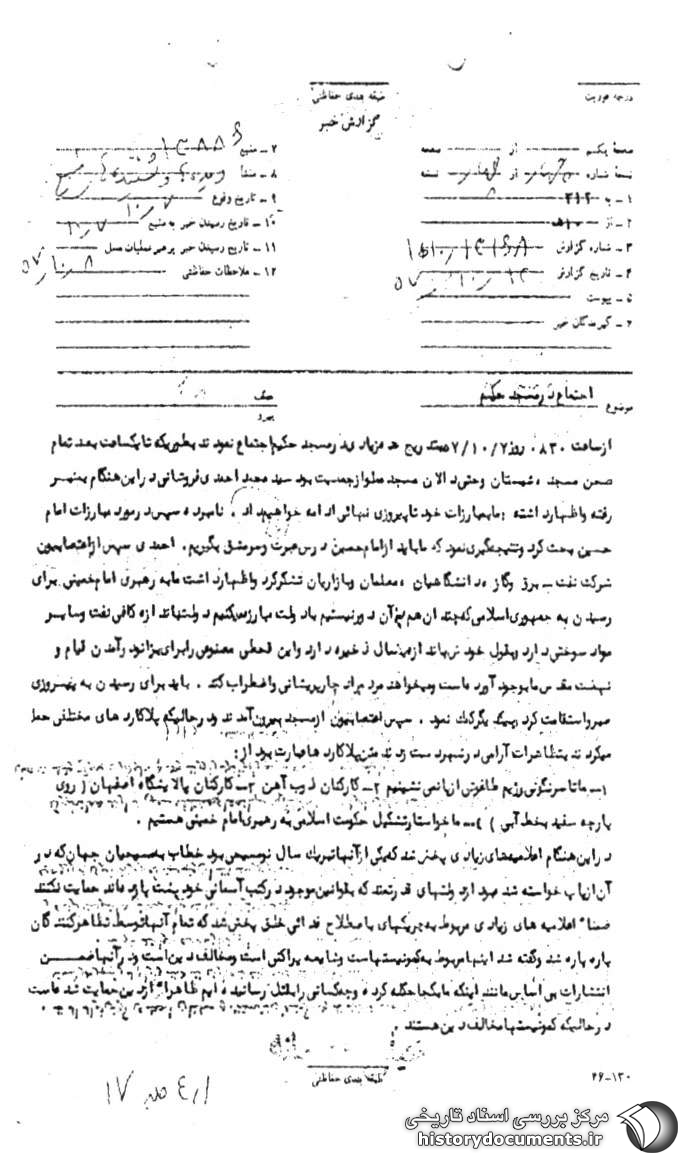 درجه فوریت
طبقه بندی حفاظتی
گزارش خبر
صفحه یکم از صفحه
نسخه شماره چهار از چهار نسخه
۱ـ به ۳۱۲
۲ـ از ۱۰ ه‍
۳ـ شماره گزارش
۴ـ تاریخ گزارش
۵ـ پیوست
۶ـ گیرندگان خبر
۷ـ منبع
۸ـ منشأ
۹ـ تاریخ وقوع
۱۰ـ تاریخ رسیدن خبر به منبع
۱۱ـ تاریخ رسیدن خبر به رهبر عملیات محل
۱۲ـ ملاحظات حفاظتی
موضوع اجتماع در مسجد حکیم
عطف
پیرو
از ساعت ۰۸۳۰ روز ۵۷/۱۰/۷ بتدریج عده زیادی در مسجد حکیم اجتماع نمودند بطوریکه تا یکساعت بعد تمام
صحن مسجد ، شبستان وحتی دالان مسجد مملو از جمعیت بود سید محمد احمدی فروشانی در این هنگام بمنبر
رفته واظهار داشته : ما بمبارزات خود تا پیروزی نهائی ادامه خواهیم داد . نامبرده سپس در مورد مبارزات امام
حسین بحث کرد ونتیجه گیری نمود که ما باید از امام حسین درس عبرت وسرمشق بگیریم . احمدی سپس از اعتصابیون
شرکت نفت ـ برق وگاز ، دانشگاهیان ، معلمان وبازاریان تشکر کرد واظهار داشت ما به رهبری امام خمینی برای
رسیدن به جمهوری اسلامی که چندان هم از آن دور نیستیم با دولت مبارزه میکنیم دولت باندازه کافی نفت وسایر
مواد سوختی دارد وبقول خودشان باندازه ذخیره دارد واین قحطی مصنوعی را برای بزانو درآمدن قیام و
نهضت مقدس ما بوجود آورده است ومیخواهد مردم را دچار پریشانی واضطراب کند . باید برای رسیدن به پیروزی
صبر واستقامت کرد وبیکدیگر کمک نمود . سپس اعتصابیون از مسجد بیرون آمدند ودر حالیکه پلاکاردهای مختلفی حمل
میکردند بتظاهرات آرامی در شهر دست زدند متن پلاکاردها عبارت بود از :
۱ـ ما تا سرنگونی رژیم طاغوتی از پا نمی نشینیم ۲ـ کارکنان ذوب آهن ۳ـ کارکنان پالایشگاه اصفهان ( روی
پارچه سفید بخط آبی ) ۴ـ ما خواستار تشکیل حکومت اسلامی به رهبری امام خمینی هستیم .
در این هنگام اعلامیه های زیادی پخش شد که یکی از آنها تبریک سال نو مسیحی بود خطاب به مسیحیان جهان که در
آن از پاپ خواسته شده بود از دولتهای قدرتمند که بقوانین موجود در کتب آسمانی خود پشت پا زده اند حمایت نکنند
ضمناً اعلامیه های زیادی مربوط به چریکهای باصطلاح فدائی خلق پخش شد که تمام آنها توسط تظاهرکنندگان
پاره پاره شد وگفته شد اینها مربوط به کمونیستهاست وشایعه پراکنی است ومخالف دین است ودر آنها ضمن
انتشارات بی اساس مانند اینکه ما بکجا حمله کرده وچه کسانی را بقتل رسانیده ایم ظاهراً از دین حمایت شده است
در حالیکه کمونیستها مخالف دین هستند .
طبقه بندی حفاظتی
۴۶-۱۳۰
مرکز بررسی اسناد تاریخی
historydocuments.ir